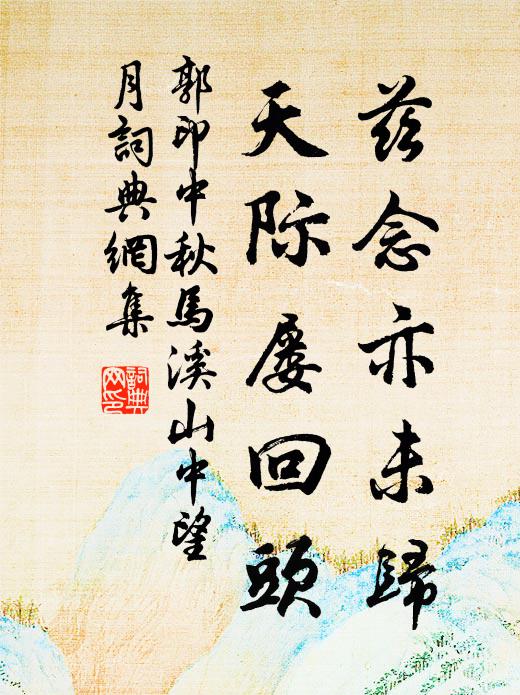 茲念亦未歸
天际屡回頭
郭印中秋馬溪山中望
月詞典網集
詞典网印